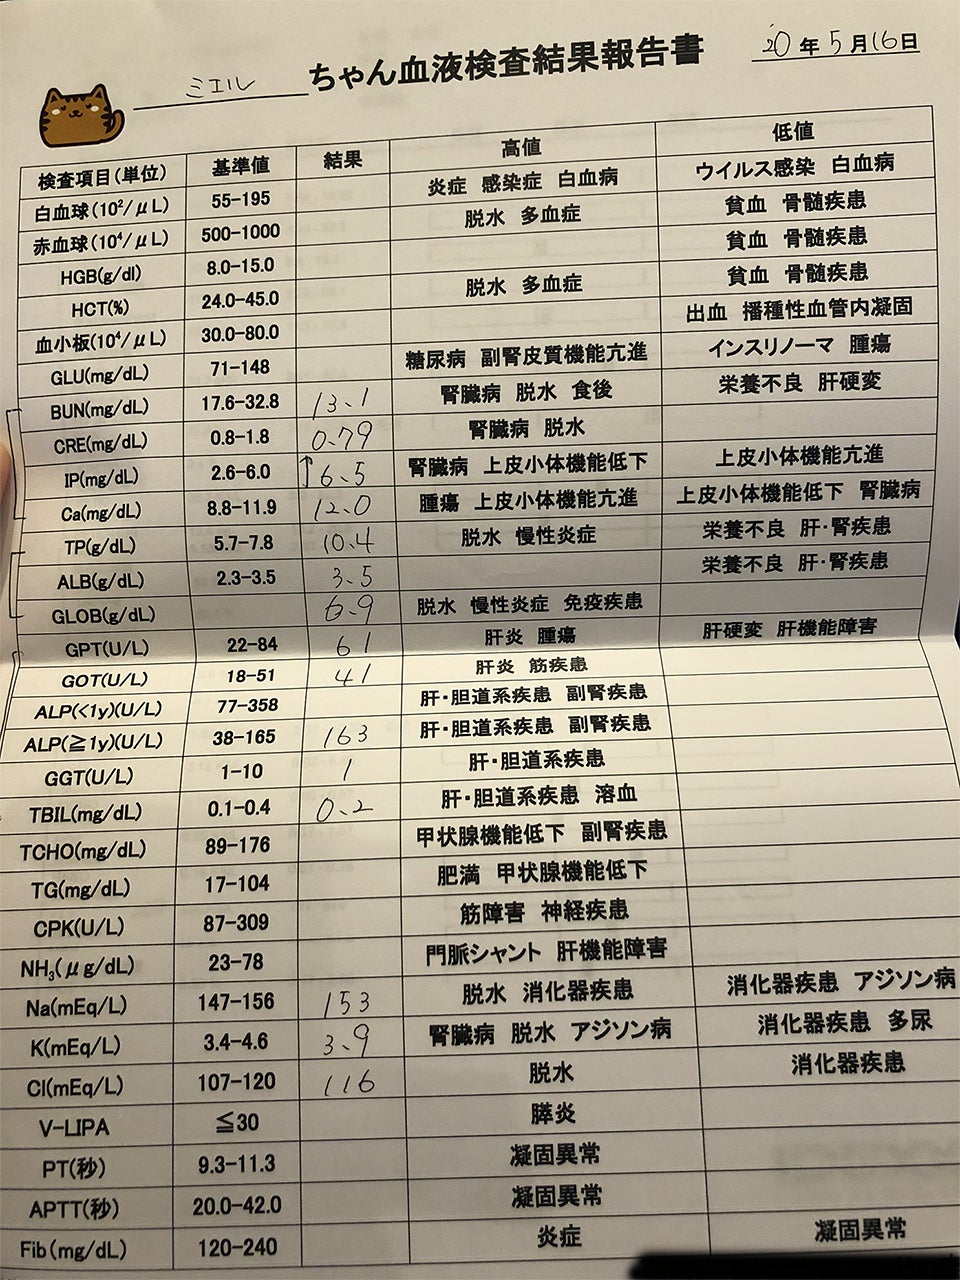 ミエル ちゃん血液検査結果報告書 '20年5月16日
検査項目(単位) 基準値 結果 高値 低値
白血球(10²/μL) 55-195 炎症 感染症 白血病 ウイルス感染 白血病
赤血球(10⁴/μL) 500-1000 脱水 多血症 貧血 骨髄疾患
HGB(g/dl) 8.0-15.0 貧血 骨髄疾患
HCT(%) 24.0-45.0 脱水 多血症 貧血 骨髄疾患
血小板(10⁴/μL) 30.0-80.0 出血 播種性血管内凝固
GLU(mg/dL) 71-148 糖尿病 副腎皮質機能亢進 インスリノーマ 腫瘍
BUN(mg/dL) 17.6-32.8 13.1 腎臓病 脱水 食後 栄養不良 肝硬変
CRE(mg/dL) 0.8-1.8 0.79 腎臓病 脱水
IP(mg/dL) 2.6-6.0 ↑6.5 腎臓病 上皮小体機能低下 上皮小体機能亢進
Ca(mg/dL) 8.8-11.9 12.0 腫瘍 上皮小体機能亢進 上皮小体機能低下 腎臓病
TP(g/dL) 5.7-7.8 10.4 脱水 慢性炎症 栄養不良 肝・腎疾患
ALB(g/dL) 2.3-3.5 3.5 栄養不良 肝・腎疾患
GLOB(g/dL) 6.9 脱水 慢性炎症 免疫疾患
GPT(U/L) 22-84 61 肝炎 腫瘍 肝硬変 肝機能障害
GOT(U/L) 18-51 41 肝炎 筋疾患
ALP(<1y)(U/L) 77-358 肝・胆道系疾患 副腎疾患
ALP(≧1y)(U/L) 38-165 163 肝・胆道系疾患 副腎疾患
GGT(U/L) 1-10 1 肝・胆道系疾患
TBIL(mg/dL) 0.1-0.4 0.2 肝・胆道系疾患 溶血
TCHO(mg/dL) 89-176 甲状腺機能低下 副腎疾患
TG(mg/dL) 17-104 肥満 甲状腺機能低下
CPK(U/L) 87-309 筋障害 神経疾患
NH₃(μg/dL) 23-78 門脈シャント 肝機能障害
Na(mEq/L) 147-156 153 脱水 消化器疾患 消化器疾患 アジソン病
K(mEq/L) 3.4-4.6 3.9 腎臓病 脱水 アジソン病 消化器疾患 多尿
Cl(mEq/L) 107-120 116 脱水 消化器疾患
V-LIPA ≦30 膵炎
PT(秒) 9.3-11.3 凝固異常
APTT(秒) 20.0-42.0 凝固異常
Fib(mg/dL) 120-240 炎症 凝固異常